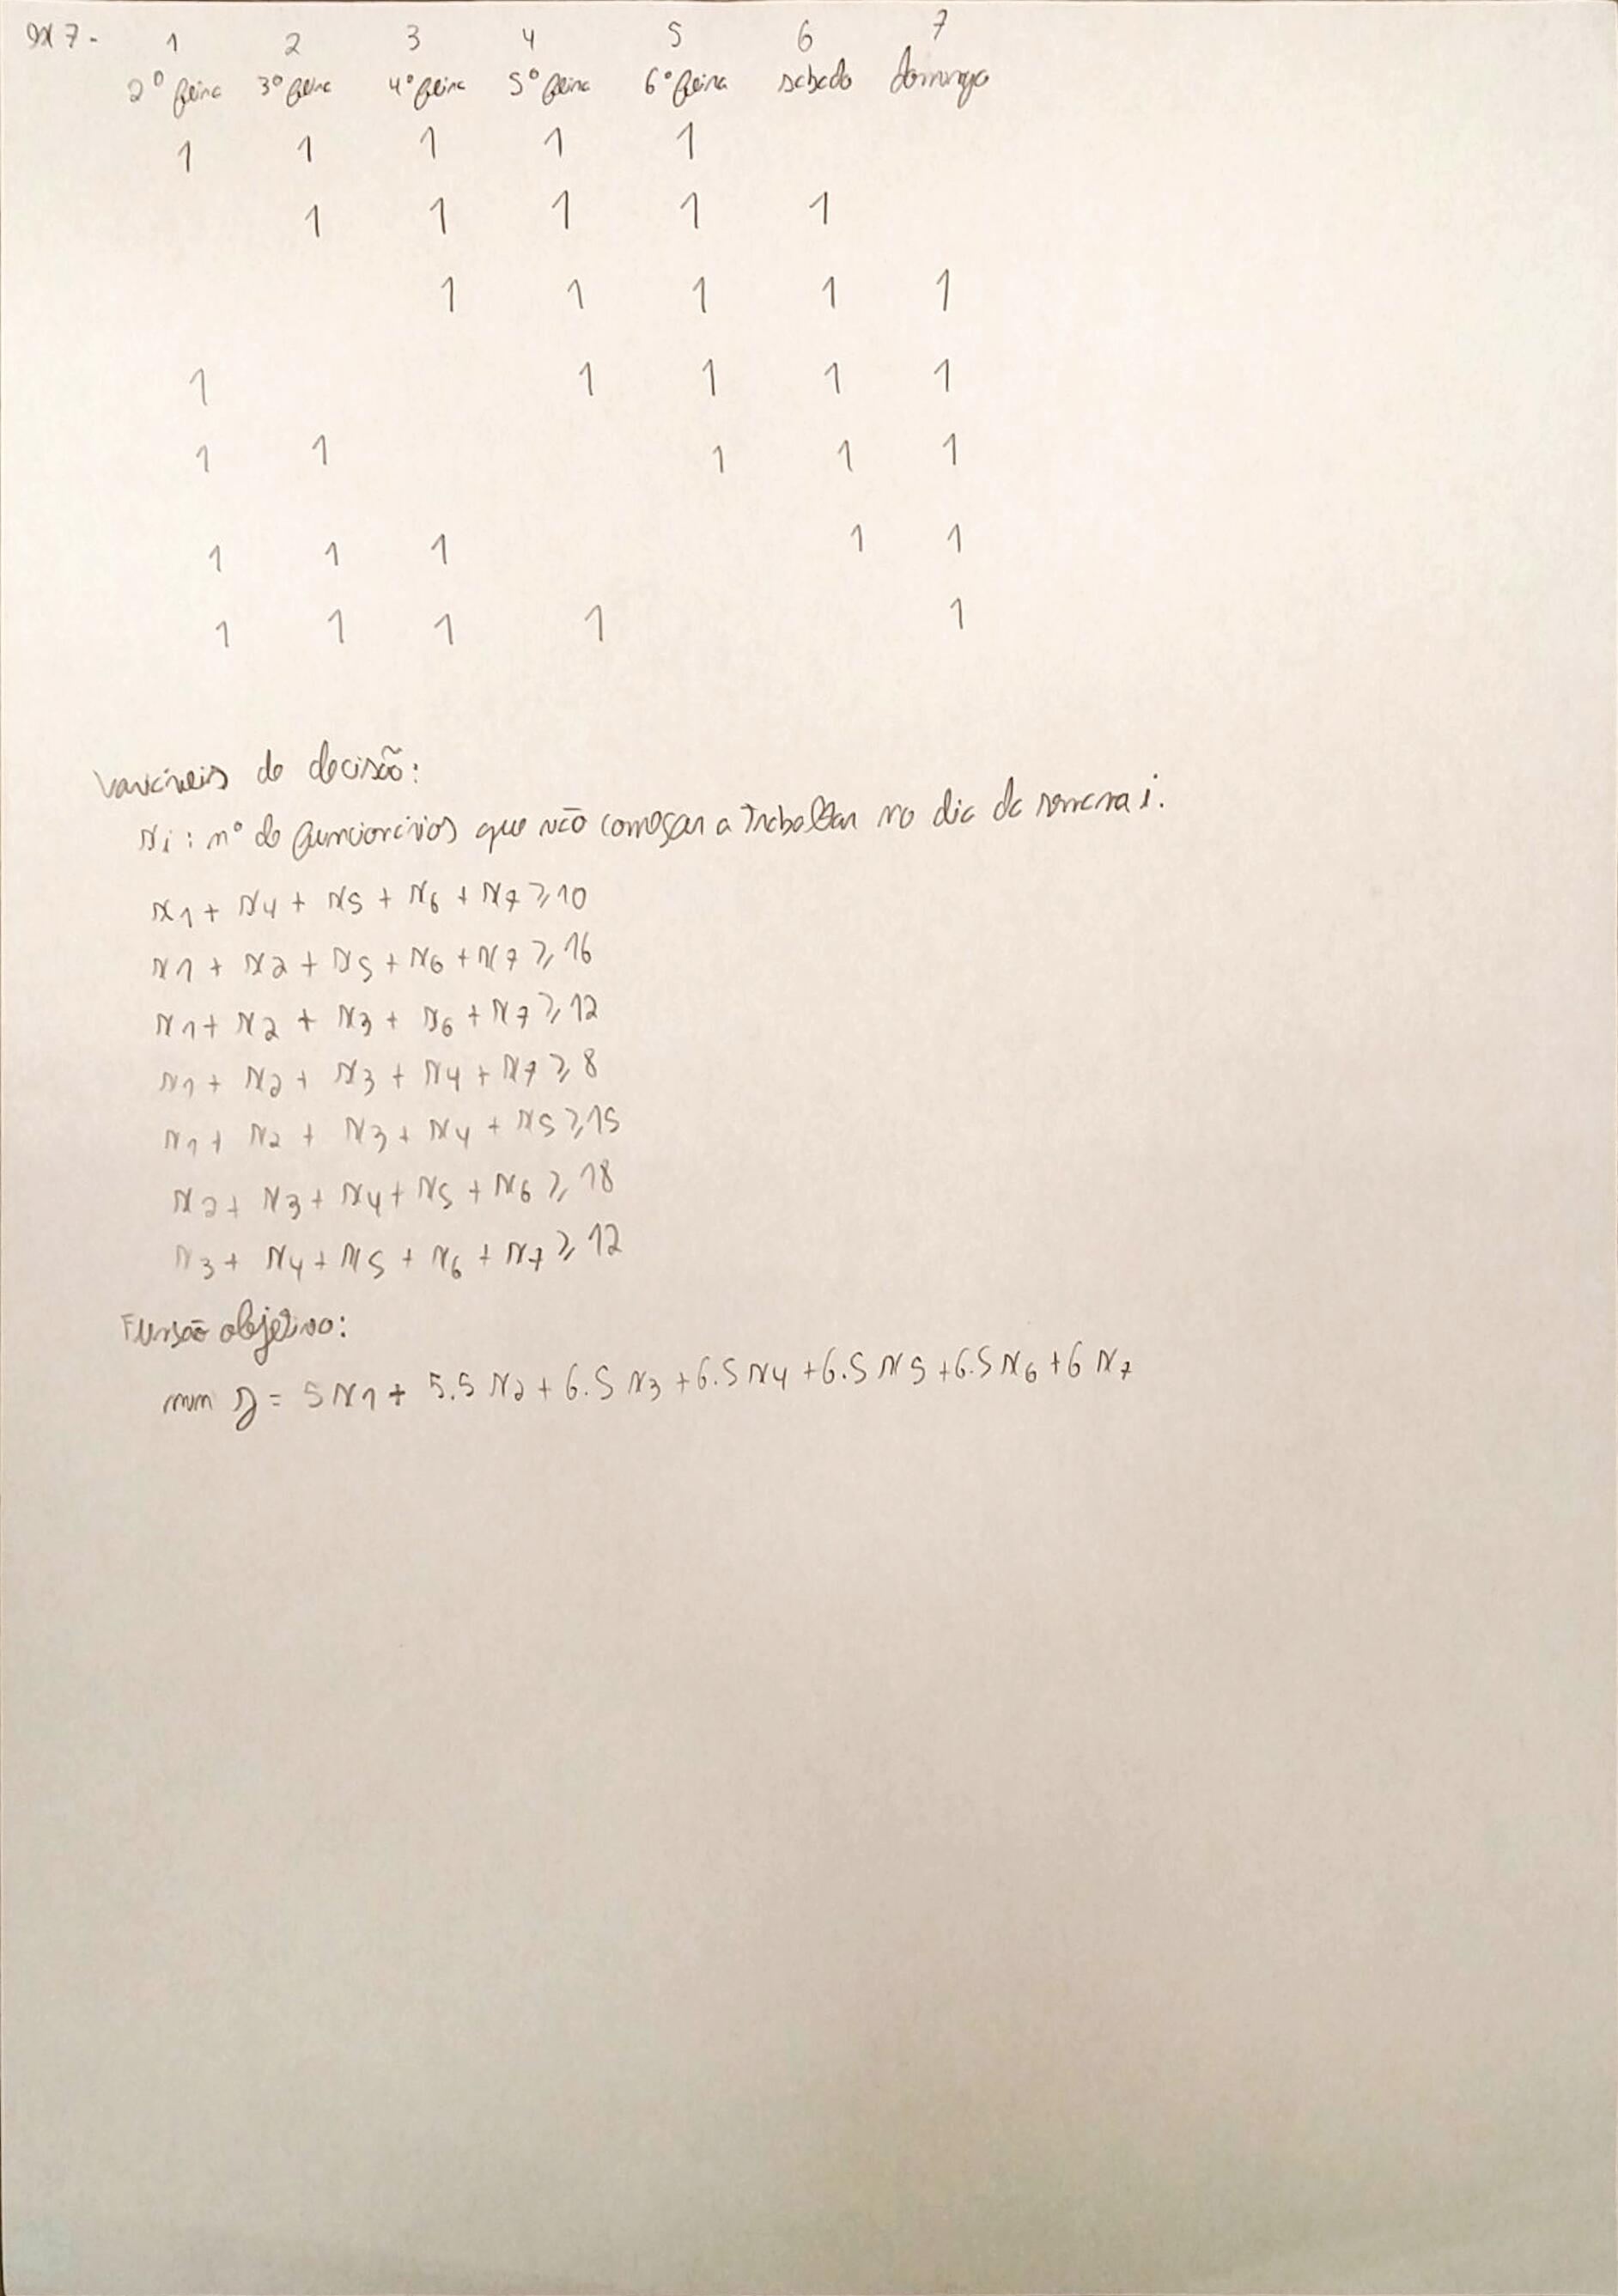 EX 7 - 1 2 3 4 5 6 7
2º feira 3º feira 4º feira 5º feira 6º feira sabado domingo
1 1 1 1 1
1 1 1 1 1
1 1 1 1 1
1 1 1 1 1
1 1 1 1 1
1 1 1 1 1
1 1 1 1 1
Variáveis de decisão:
xi : nº de funcionários que vão começar a trabalhar no dia da semana i.
x1 + x4 + x5 + x6 + x7 ≥ 10
x1 + x2 + x5 + x6 + x7 ≥ 16
x1 + x2 + x3 + x6 + x7 ≥ 12
x1 + x2 + x3 + x4 + x7 ≥ 8
x1 + x2 + x3 + x4 + x5 ≥ 15
x2 + x3 + x4 + x5 + x6 ≥ 18
x3 + x4 + x5 + x6 + x7 ≥ 12
Função objetivo:
min z = 5x1 + 5.5x2 + 6.5x3 + 6.5x4 + 6.5x5 + 6.5x6 + 6x7